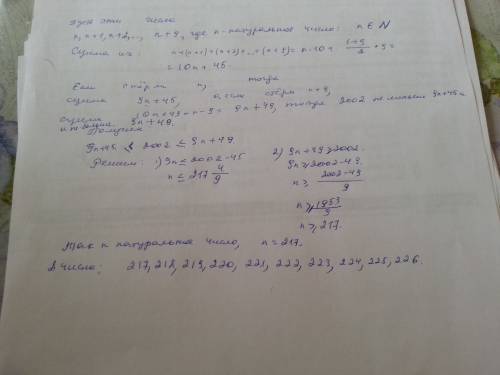 Пусть эти числа
n, n+1, n+2, ..., n+9, где n-натуральное число: n ∈ N
Сумма их: n+(n+1)+(n+2)+...+(n+9)= n·10+ 1+9/2 ·9=
=10n+45.
Если стёрли n, тогда
сумма 9n+45, а если стёрли n+9,
сумма 10n+45-n-9= 9n+49, тогда 2002 не меньше 9n+45 и
и не больше 9n+49.
Получаем
9n+45 ≤ 2002 ≤ 9n+49.
Решаем: 1) 9n ≤ 2002-45
n ≤ 217 4/9
2) 9n+49≥2002.
9n≥2002-49.
n≥ 2002-49/9
n≥ 1953/9
n≥217.
Так n натуральное число, n=217.
А числа: 217, 218, 219, 220, 221, 222, 223, 224, 225, 226.